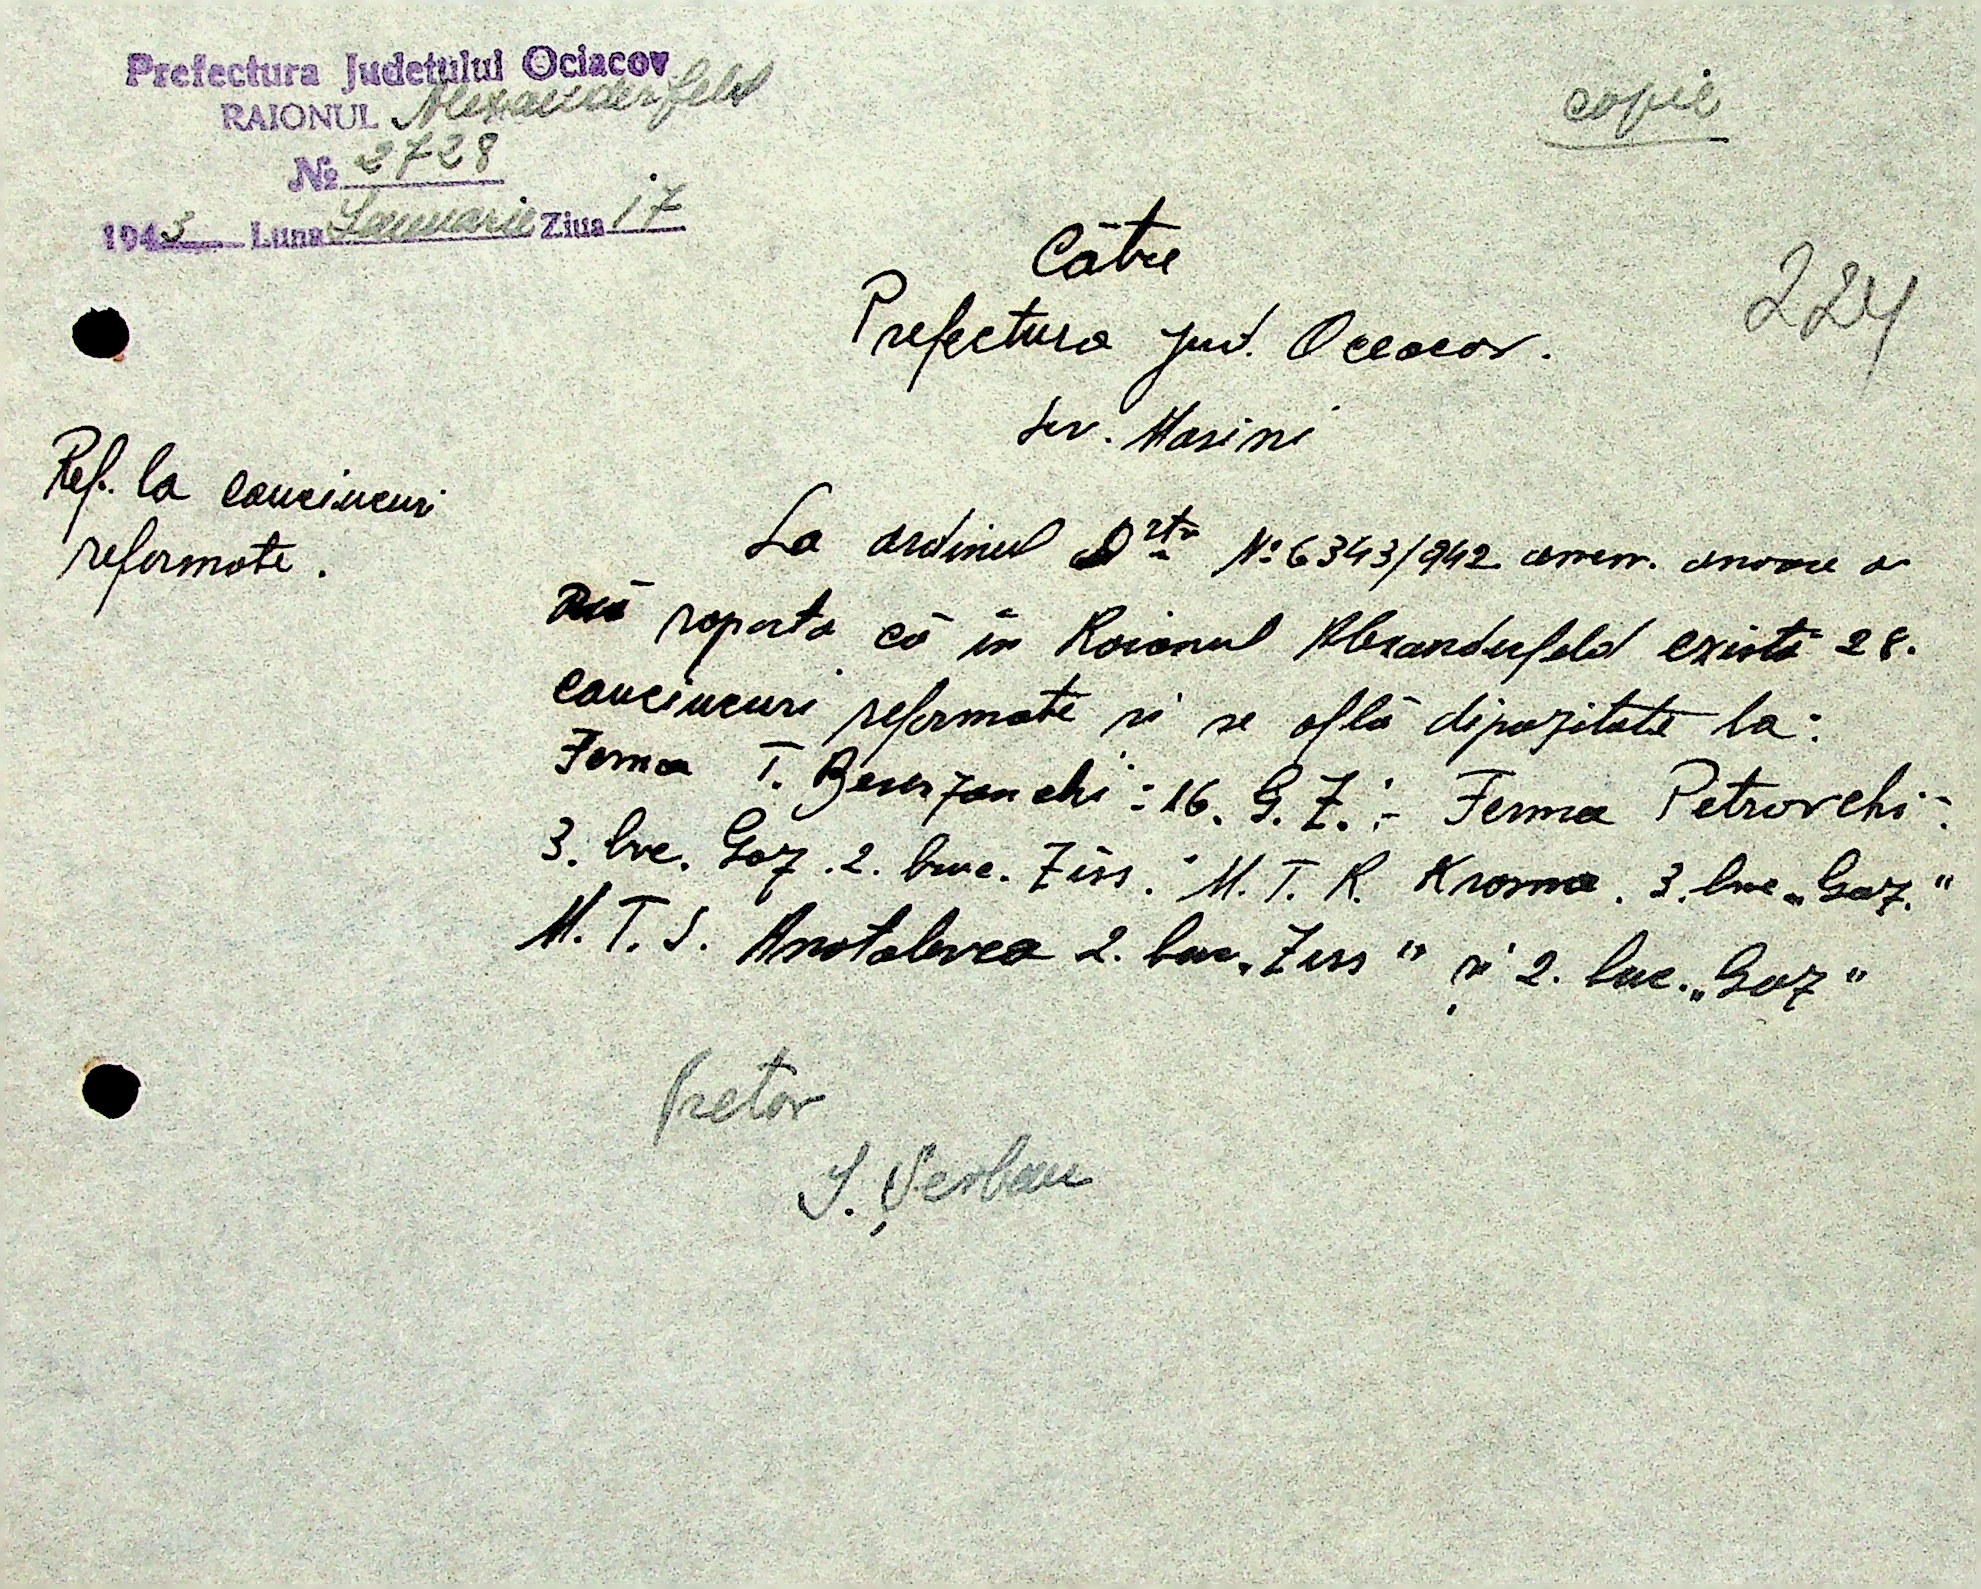 Prefectura Judetului Ociacov
RAIONUL Alexanderfeld
copie
№ 2728
1943 Luna Ianuarie Ziua 17
Către
224
Prefectura Jud. Oceacov.
Serv. Masini
Ref. la cauciucuri
reformate.
La ordinul Dvtră № 6343/942 avem. onoare a
Vă raporta că în Raionul Alexanderfeld există 28.
cauciucuri reformate si se află dipozitate la:
Ferma T. : 16. G. Z. :- Ferma Petrovchi -:
3. buc. Gaz. 2. buc. Ziss. M. T. R. Kroma. 3. buc „Gaz."
M. T. S. Anatolevca 2. buc „Ziss" și 2. buc. „Gaz"
Pretor
I. Șerban